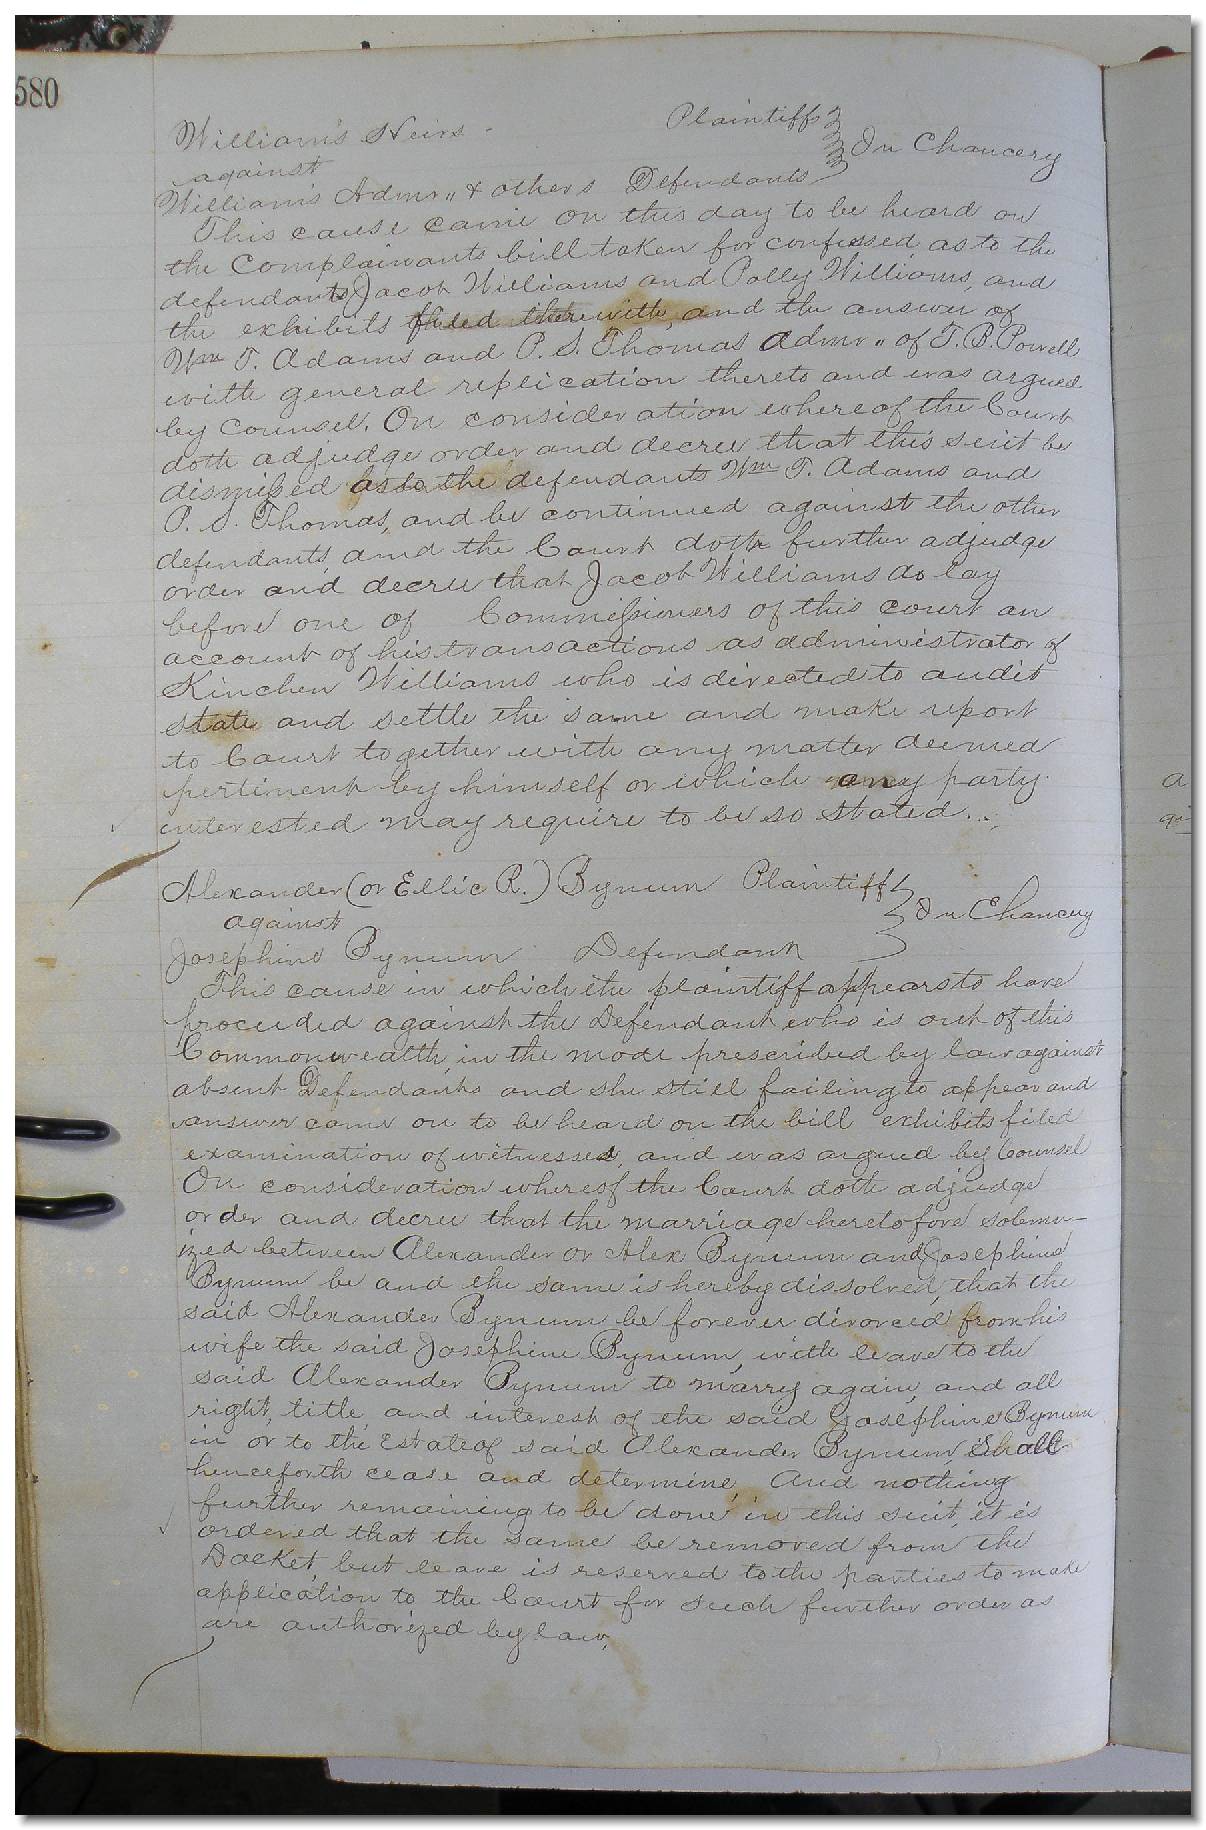 580
William's Heirs - Plaintiffs
against In Chancery
William's Admr ,, & others Defendants
This cause came on this day to be heard on
the Complainants bill taken for confessed, as to the
defendants Jacob Williams and Polly Williams, and
the exhibits filed therewith, and the answer of
Wm T. Adams and P. S. Thomas Admr ,, of T. B. Powell
with general replication thereto and was argued
by counsel. On consideration whereof the Court
doth adjudge order and decree that this suit be
dismissed as to the defendants Wm T. Adams and
P. S. Thomas, and be continued against the other
defendants, and the Court doth further adjudge
order and decree that Jacob Williams do lay
before one of Commissioners of this court an
account of his transactions as administrator of
Kinchen Williams who is directed to audit
state and settle the same and make report
to Court together with any matter deemed
pertinent by himself or which any party
interested may require to be so stated..,
Alexander (or Ellic R.) Bynum Plaintiff
against In Chancery
Josephine Bynum Defendant
This cause in which the plaintiff appears to have
proceeded against the Defendant who is out of this
Commonwealth, in the mode prescribed by law against
absent Defendants and she still failing to appear and
answer came on to be heard on the bill exhibits filed
examination of witnesses, and was argued by Counsel
On consideration whereof the Court doth adjudge
order and decree that the marriage heretofore solemn-
ized between Alexander or Alex Bynum and Josephine
Bynum be and the same is hereby dissolved, that the
said Alexander Bynum be forever divorced from his
wife the said Josephine Bynum, with leave to the
said Alexander Bynum to marry again, and all
right, title, and interest of the said Josephine Bynum
in or to the Estate of said Alexander Bynum, shall
henceforth cease and determine, And nothing
further remaining to be done in this suit, it is
ordered that the same be removed from the
Docket, but leave is reserved to the parties to make
application to the Court for such further order as
are authorized by law,